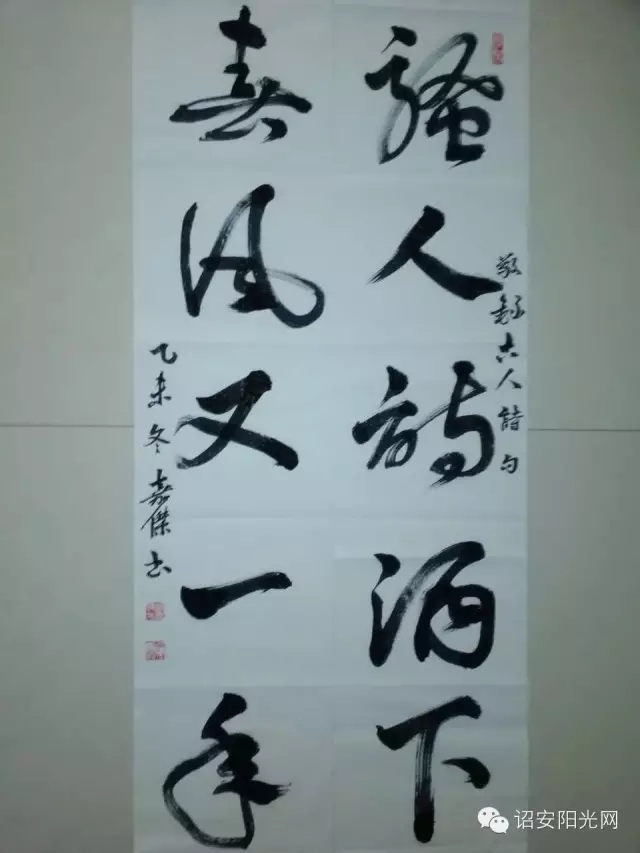 騷人詩酒下
敬錄古人詩句
春風又一年
乙未冬嘉傑書
诏安阳光网